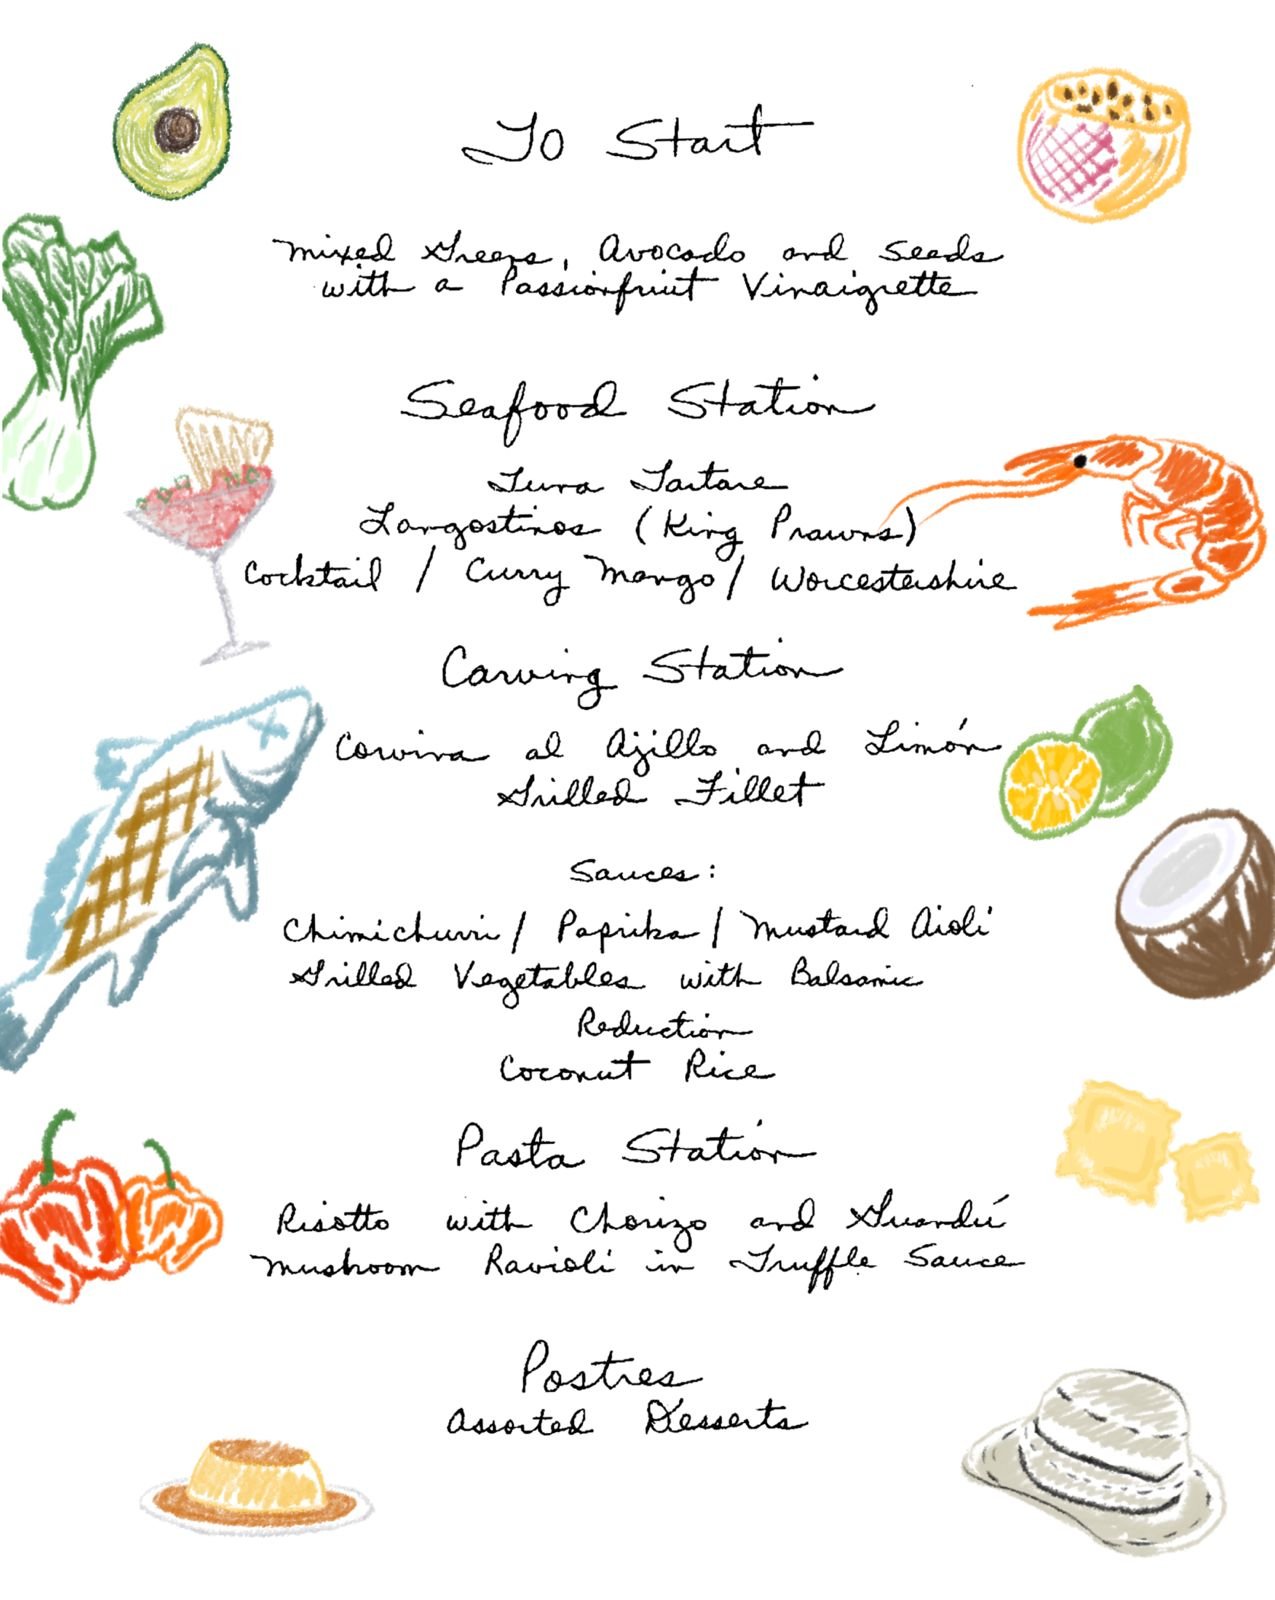 To Start
Mixed Greens, Avocado and Seeds
with a Passionfruit Vinaigrette
Seafood Station
Tuna Tartare
Langostinos (King Prawns)
Cocktail / Curry Mango / Worcestershire
Carving Station
Corvina al Ajillo and Limón
Grilled Fillet
Sauces:
Chimichurri / Paprika / Mustard Aioli
Grilled Vegetables with Balsamic
Reduction
Coconut Rice
Pasta Station
Risotto with Chorizo and Guandú
Mushroom Ravioli in Truffle Sauce
Postres
Assorted Desserts